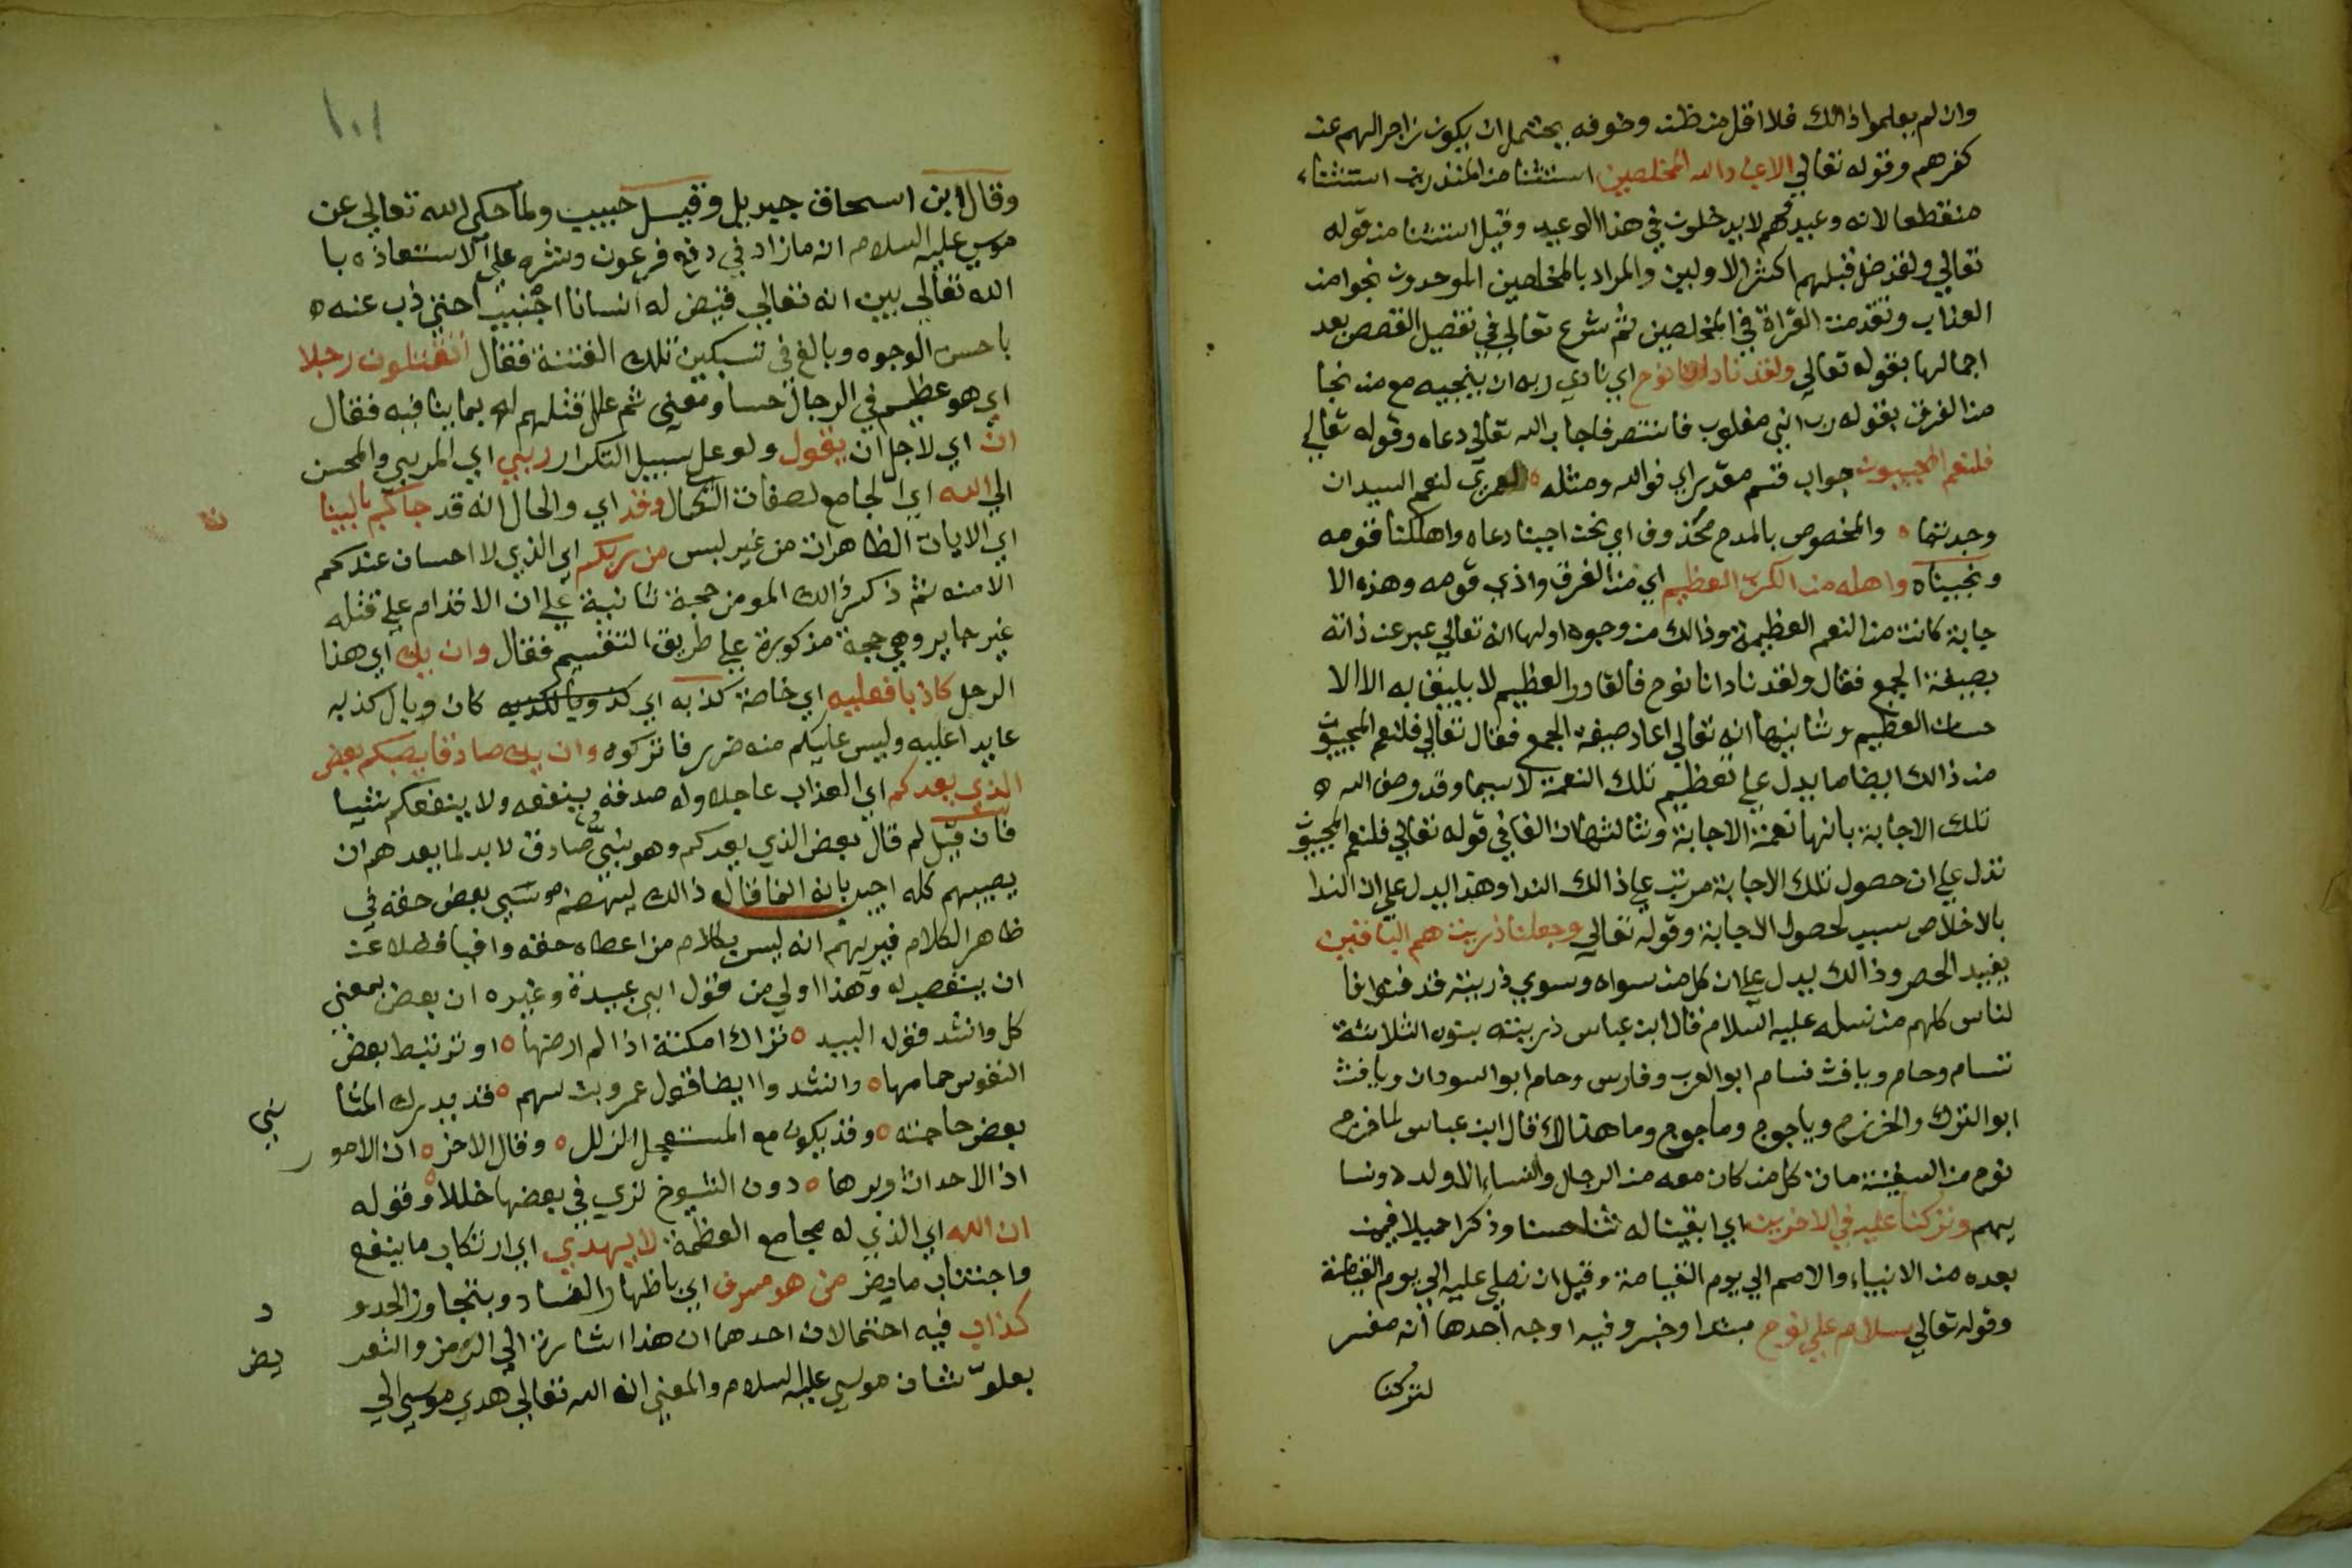 وان لم يعلموا ذالك فلا اقل من ظن وخوف يحتمل ان يكون زاجرا لهم عن
كفرهم وقوله تعالي الا عباد الله المخلصين استثنا من المنذرين استثناء
منقطعا لانه وعيد فهم لا يدخلون في هذا الوعيد وقيل استثنا من قوله
تعالي ولقد ضل قبلهم اكثر الاولين والمراد بالمخلصين الموحدون نجوا من
العذاب وتقدمت القراة في المخلصين ثم شرع تعالي في تفصيل القصص بعد
اجمالها بقوله تعالي ولقد نادانا نوح اي نادي ربه ان ينجيه مع من نجا
من الغرق بقوله رب اني مغلوب فانتصر فاجاب الله تعالي دعاه وقوله تعالي
فلنعم المجيبون جواب قسم مقدر اي فوالله ومثله ه لعمري لنعم السيدان
وجدتما ه والمخصوص بالمدح محذوف اي نحن اجبنا دعاه واهلكنا قومه
ونجيناه واهله من الكرب العظيم اي من الغرق واذي قومه وهذه الا
جابة كانت من النعم العظيمة وذالك من وجوه اولها انه تعالي عبر عن ذاته
بصيغة الجمع فقال ولقد نادانا نوح فالقادر العظيم لا يليق به الا الا
حسان العظيم وثانيها انه تعالي اعاد صيغة الجمع فقال تعالي فلنعم المجيبون
من ذالك ايضا ما يدل علي تعظيم تلك النعمة لا سيما وقد وصف الله ه
تلك الاجابة بانها نعمة الاجابة وثالثها ان الفا في قوله تعالي فلنعم المجيبون
تدل علي ان حصول تلك الاجابة مرتب علي ذالك الندا وهذا يدل علي ان الندا
بالاخلاص سبب لحصول الاجابة وقوله تعالي وجعلنا ذريته هم الباقين
يفيد الحصر وذالك يدل علي ان كل من سواه وسوي ذريته قد فنوا فا
لناس كلهم من نسله عليه السلام قال ابن عباس ذريته بنوه الثلاثة
سام وحام ويافث فسام ابو العرب وفارس وحام ابو السودان ويافث
ابو الترك والخزرج وياجوج وماجوج وما هنالك قال ابن عباس لما خرج
نوح من السفينة مات كل من كان معه من الرجال والنساء الا ولده ونسا
يهم وتركنا عليه في الاخرين اي ابقينا له ثناء حسنا وذكرا جميلا فيمن
بعده من الانبياء والامم الي يوم القيامة وقيل ان نصلي عليه الي يوم القيامة
وقوله تعالي سلام علي نوح مبتدا وخبر وفيه اوجه احدها انه مفسر
لتركنا
١٠١
وقال ابن اسحاق جبريل وقيل حبيب ولما حكي الله تعالي عن
موسي عليه السلام انه ما زاد في دفع فرعون وشره علي الاستعاذه با
الله تعالي بين انه تعالي قيض له انسانا اجنبيا حتي ذب عنه ه
باحسن الوجوه وبالغ في تسكين تلك الفتنة فقال اتقتلون رجلا
اي هو عظيم في الرجال حسا ومعني ثم علل قتلهم له بما ينافيه فقال
ان اي لاجل ان يقول ولو علي سبيل التكرار ربي اي المربي والمحسن
الي الله اي الجامع لصفات الكمال وقد اي والحال انه قد جاكم بالبينا
ت
اي الايات الظاهرات من غير لبس من ربكم اي الذي لا احسان عندكم
الا منه ثم ذكر ذالك المومن حجة ثانية علي ان الاقدام علي قتله
غير جايز وهي حجة مذكورة علي طريق التقسيم فقال وان يك اي هذا
الرجل كاذبا فعليه اي خاصة كذبه اي كان وبال كذبه
عايدا عليه وليس عليكم منه ضرر فاتركوه وان يك صادقا يصبكم بعض
الذي يعدكم اي العذاب عاجلا وله صدقه ينفعه ولا ينفعكم شيا
فان قيل لم قال بعض الذي يعدكم وهو نبي صادق لا بد لما يعدهم ان
يصيبهم كله اجيب بانه انما قال ذالك ليهضم موسي بعض حقه في
ظاهر الكلام فيريهم انه ليس بكلام من اعطاه حقه وافيا فضلا عن
ان يتعصب له وهذا اولي من قول ابي عبيدة وغيره ان بعض بمعني
كل وانشد قول لبيد ه تراك امكنة اذا لم ارضها ه او ترتبط بعض
النفوس حمامها ه وانشدوا ايضا قول عمرو بن سهم ه قد يدرك المتا
ني
بعض حاجته ه وقد يكون مع المستعجل الزلل ه وقال الاخر ه ان الامو
ر
اذا الاحداث دبرها ه دون الشيوخ تري في بعضها خللا ه وقوله
ان الله اي الذي له مجامع العظمة لا يهدي اي ارتكاب ما ينفع
واجتناب ما يضر من هو مسرف اي باظهار الفساد وبتجاوز الحدو
د
كذاب فيه احتمالان احدهما ان هذا اشارة الي الرمز والتعر
يض
بعلو شان موسي عليه السلام والمعني ان الله تعالي هدي موسي الي